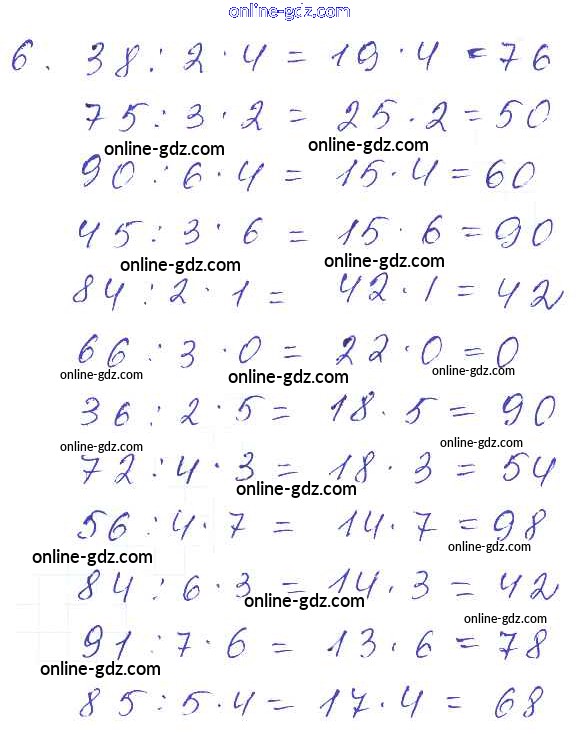 online-gdz.com
6. 38 : 2 · 4 = 19 · 4 = 76
75 : 3 · 2 = 25 · 2 = 50
online-gdz.com online-gdz.com
90 : 6 · 4 = 15 · 4 = 60
45 : 3 · 6 = 15 · 6 = 90
online-gdz.com online-gdz.com
84 : 2 · 1 = 42 · 1 = 42
66 : 3 · 0 = 22 · 0 = 0
online-gdz.com online-gdz.com online-gdz.com
36 : 2 · 5 = 18 · 5 = 90
online-gdz.com online-gdz.com
72 : 4 · 3 = 18 · 3 = 54
online-gdz.com
56 : 4 · 7 = 14 · 7 = 98
online-gdz.com online-gdz.com
84 : 6 · 3 = 14 · 3 = 42
online-gdz.com online-gdz.com
91 : 7 · 6 = 13 · 6 = 78
online-gdz.com
85 : 5 · 4 = 17 · 4 = 68